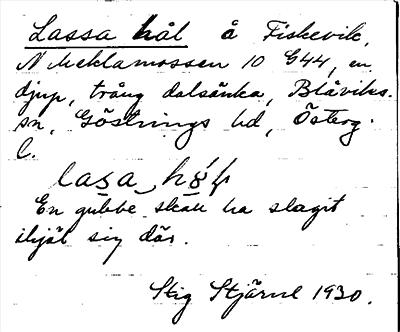 Lassa hål å Fiskevik,
N Meklamossen 10 G44, en
djup, trång dalsänka, Blåviks
sn, Göstrings hd, Österg.
l.
lasa hål
En gubbe skall ha slagit
ihjäl sig där.
Stig Stjärne 1930.